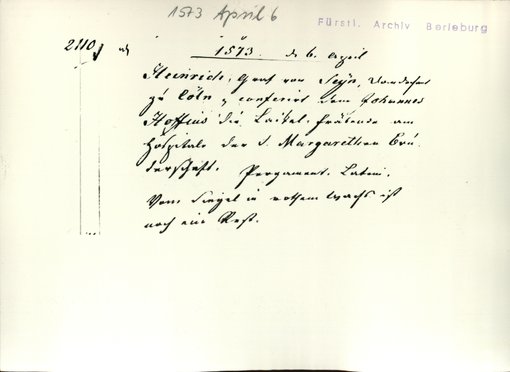 1573 April 6
Fürstl. Archiv Berleburg
2110
1573. d. 6. April
Heinrich, Graf von Seÿn, Domdechant
zu Cöln, conferirt dem Johannes
Hoffius die Präbende am
Hospitale der S. Margarethen Brü-
derschaft. Pergament. Latein.
Vom Siegel in rothem Wachs ist
noch ein Rest.